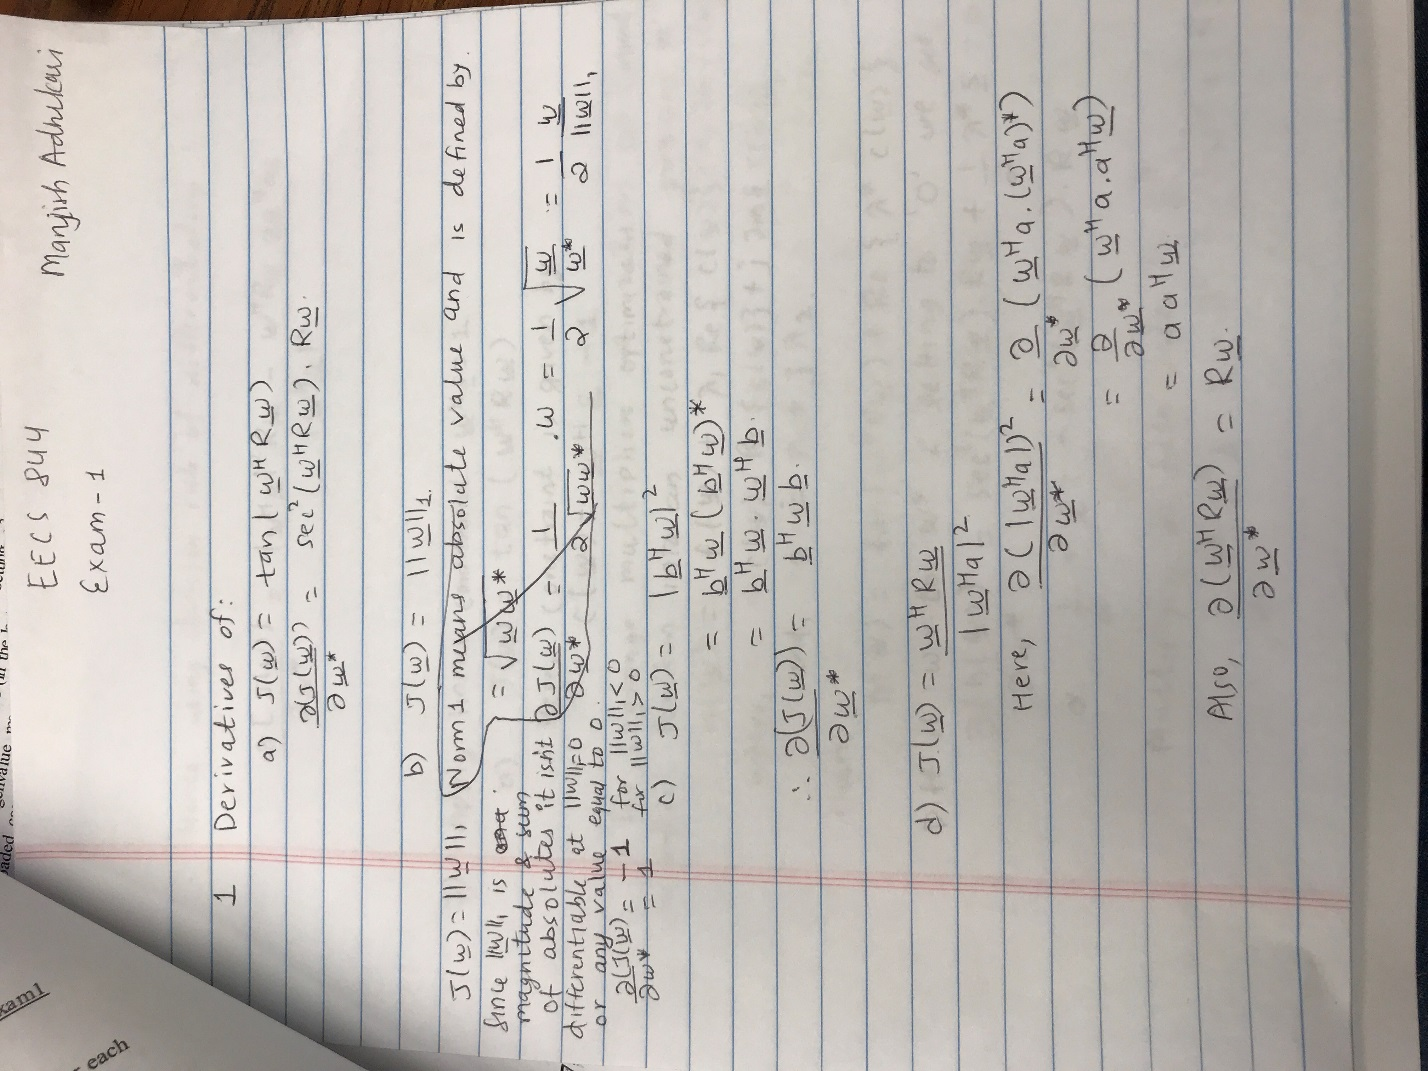 EECS 844
Manjish Adhikari
Exam-1
1 Derivatives of:
a) J(w) = tan(w^H R w)
∂J(w)/∂w* = sec²(w^H R w). R w.
b) J(w) = ||w||₁.
J(w) = ||w||₁
Norm 1 means absolute value and is defined by.
= √(w w*)
∂J(w)/∂w* = 1/(2√(ww*)) .w = 1/2 √(w/w*) = 1/2 w/||w||₁
Since ||w||₁ is
magnitude & sum
of absolutes it isn't
differentiable at ||w||₁=0
or any value equal to 0.
∂(J(w))/∂w* = -1 for ||w||₁<0
= 1 for ||w||₁>0
c) J(w) = |b^H w|²
= b^H w (b^H w)*
= b^H w . w^H b.
∴ ∂(J(w))/∂w* = b^H w b.
d) J(w) = w^H R w / |w^H a|²
Here, ∂(|w^H a|)²/∂w* = ∂/∂w* (w^H a . (w^H a)*)
= ∂/∂w* (w^H a . a^H w)
= a a^H w.
Also, ∂(w^H R w)/∂w* = R w.
xam1
each